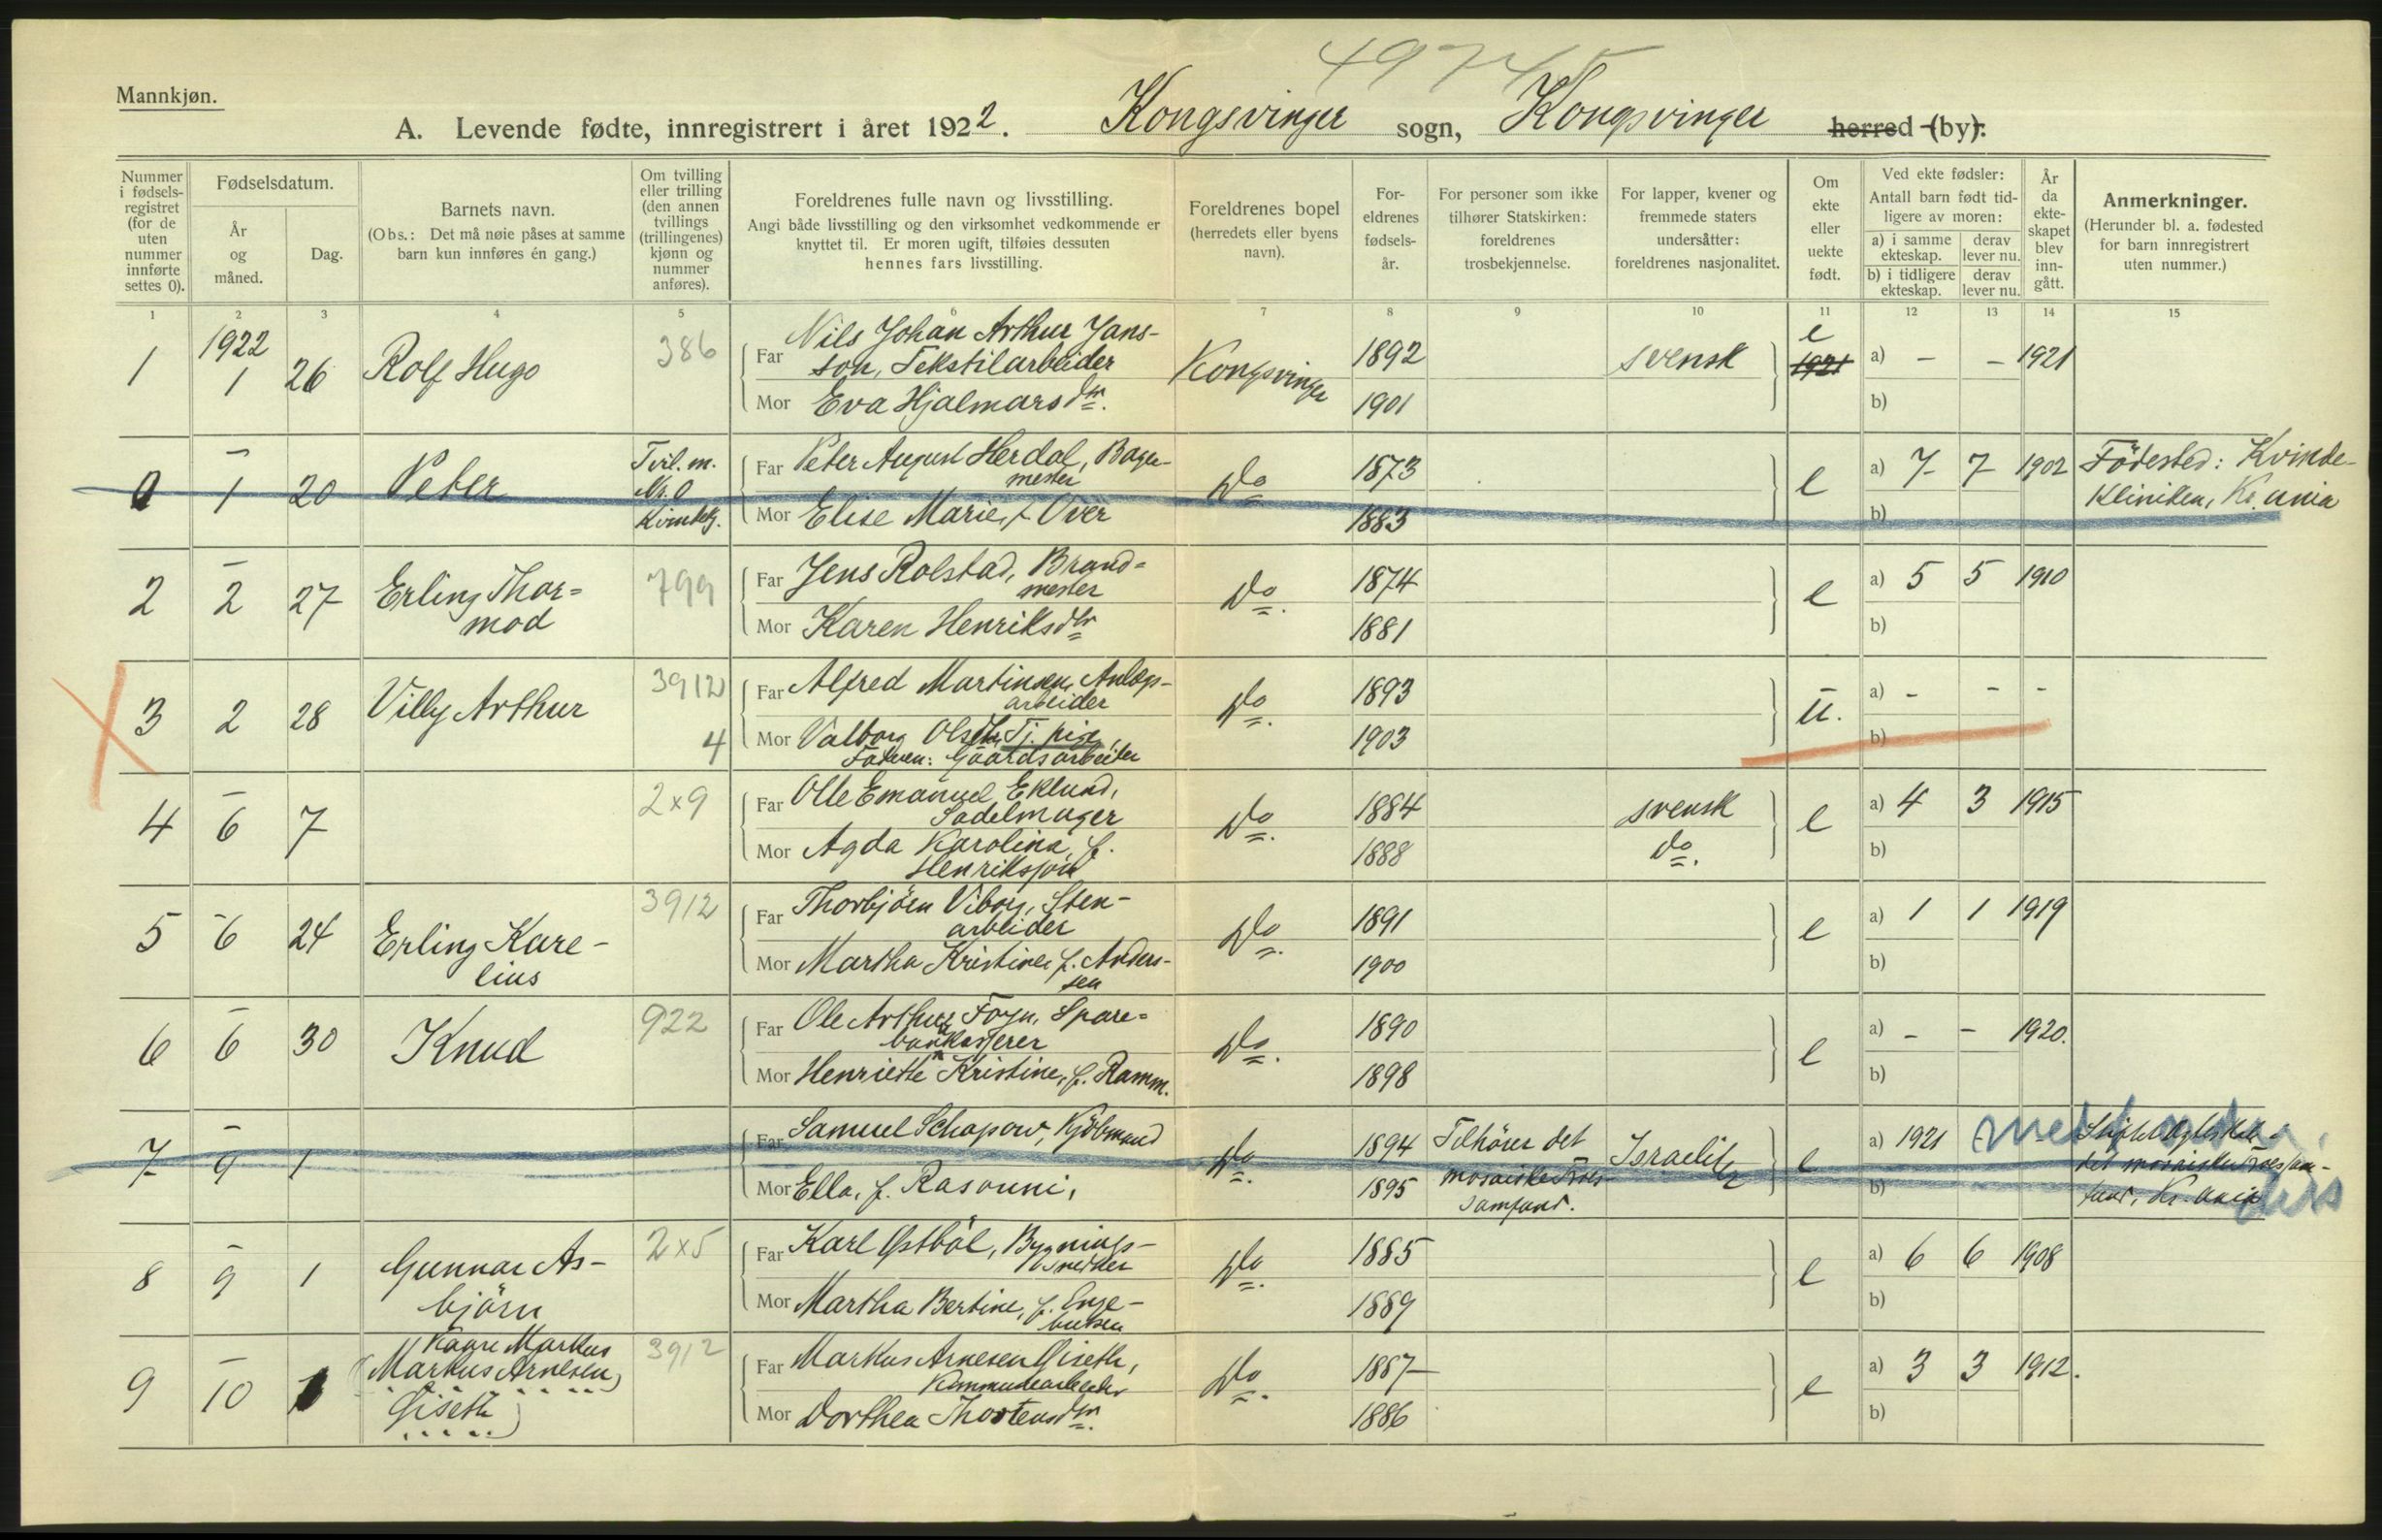 49745
Mannkjøn.
A. Levende fødte, innregistrert i året 1922. Kongsvinger sogn, Kongsvinger herred (by).
Nummer i fødsels-registret (for de uten nummer innførte settes 0).
Fødselsdatum.
År og måned.
Dag.
Barnets navn.
(Obs.: Det må nøie påses at samme barn kun innføres én gang.)
Om tvilling eller trilling (den annen tvillings (trillingenes) kjønn og nummer anføres).
Foreldrenes fulle navn og livsstilling.
Angi både livsstilling og den virksomhet vedkommende er knyttet til. Er moren ugift, tilføies dessuten hennes fars livsstilling.
Foreldrenes bopel (herredets eller byens navn).
For-eldrenes fødsels-år.
For personer som ikke tilhører Statskirken: foreldrenes trosbekjennelse.
For lapper, kvener og fremmede staters undersåtter: foreldrenes nasjonalitet.
Om ekte eller uekte født.
Ved ekte fødsler: Antall barn født tid-ligere av moren:
a) i samme ekteskap. derav lever nu.
b) i tidligere ekteskap. derav lever nu.
År da ekte-skapet blev inn-gått.
Anmerkninger.
(Herunder bl. a. fødested for barn innregistrert uten nummer.)
1 2 3 4 5 6 7 8 9 10 11 12 13 14 15
1 1922 1 26 Rolf Hugo 386
Far Nils Johan Arthur Jans-
son, Tekstilarbeider
Mor Eva Hjalmarsdtr.
Kongsvinger 1892 1901 svensk e 1921 a) - - 1921
b)
0 - 1 20 Peter
Tvil. m.
Nr. 0
Kvindekj.
Far Peter August Herdal, Bager-
mester
Mor Elise Marie, f. Over
Do 1873 1883 e a) 7 7 1902
b)
Födested: Kvinde-
kliniken, Kr.ania
2 - 2 27 Erling Thor=
mod
799
Far Jens Rolstad, Brand=
mester
Mor Karen Henriksdtr
Do. 1874 1881 e a) 5 5 1910
b)
3 2 28 Villy Arthur 3912
4
Far Alfred Martinsen, Anlægs-
arbeider
Mor Valborg Olsdtr, Tj. pige,
Faderen: Gaardsarbeider
Do. 1893 1903 u. a) - - -
b)
4 - 6 7 2x9
Far Olle Emanuel Eklund,
Sadelmager
Mor Agda Karolina, f.
Henriksson
Do. 1884 1888 svensk do. e a) 4 3 1915
b)
5 - 6 24 Erling Kare-
lius
3912
Far Thorbjörn Viborg, Sten-
arbeider
Mor Martha Kristine, f. Anders-
sen
Do. 1891 1900 e a) 1 1 1919
b)
6 - 6 30 Knud 922
Far Ole Arthur Fogn, Spare=
bankkasserer
Mor Henriette Kristine, f. Ramm.
Do. 1890 1898 e a) - - 1920.
b)
7 - 9 1
Far Samuel Schapow, Kjöbmand
Mor Ella, f. Rasouni,
Do. 1894 1895
Tilhörer det
mosaiske Tros-
samfund.
Israelitz e a) 1921
b)
det mosaiske Trossam-
fund, Kr.ania
8 - 9 1 Gunnar As-
björn
2x5
Far Karl Østböl, Bygnings-
snedker
Mor Martha Bertine, f. Enge-
bretsen
Do. 1885 1889 e a) 6 6 1908
b)
9 - 10 1
Kaare Markus
(Markus Arnesen)
Giseth)
3912
Far Markus Arnesen Giseth,
Kommunearbeider
Mor Dorthea Thorstensdtr.
Do. 1887 1886 e a) 3 3 1912.
b)